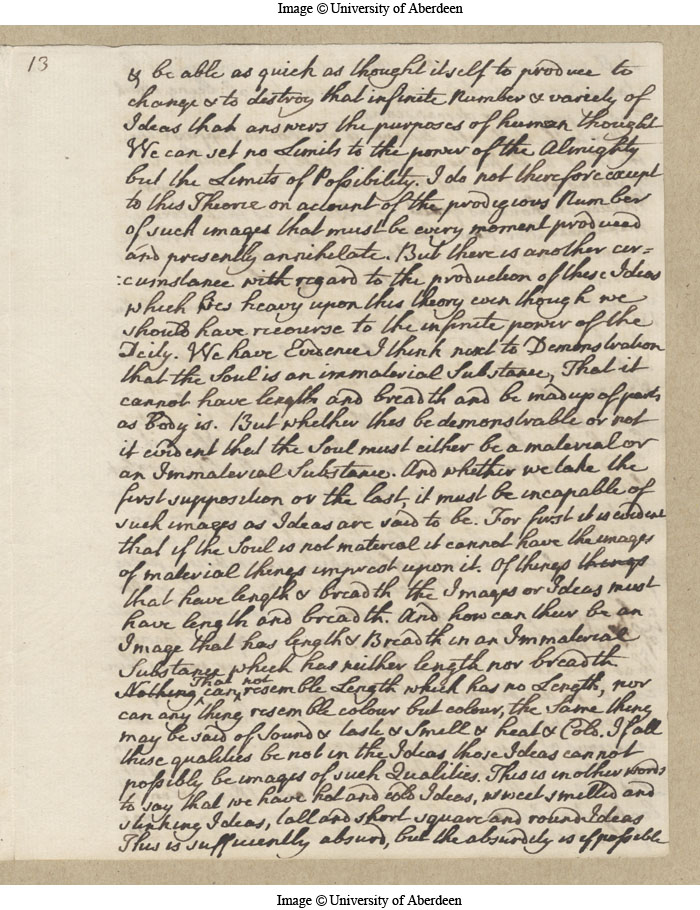 Image © University of Aberdeen
13
& be able as quick as thought itself to produce to
change & to destroy that infinite Number & variety of
Ideas that answers the purposes of human thought
We can set no Limits to the power of the Almighty
but the Limits of Possibility. I do not therefore except
to this Theorie on account of the prodigious Number
of such images that must be every moment produced
and presently annihilate. But there is another cir=
:cumstance with regard to the production of these Ideas
which lies heavy upon this theory even though we
should have recourse to the infinite power of the
Deity. We have Evidence I think next to Demonstration
that the Soul is an immaterial Substance, That it
cannot have length and breadth and be made up of parts
as Body is. But whether this be demonstrable or not
it evident that the Soul must either be a material or
an Immaterial Substance. And whether we take the
first supposition or the last, it must be incapable of
such images as Ideas are said to be. For first it is evident
that if the Soul is not material it cannot have the images
of material things imprest upon it. Of things things
that have length & breadth the Images or Ideas must
have length and breadth. And how can their be an
Image that has length & Breadth in an Immaterial
Substance which has neither length nor breadth
Nothing That can not resemble Length which has no Length, nor
can any thing resemble colour but colour, the same thing
may be said of Sound & taste & Smell & heat & Cold. If all
these qualities be not in the Ideas those Ideas cannot
possibly be images of such Qualities. This is in other words
to say that we have hot and cold Ideas, sweet smelled and
stinking Ideas, tall and short square and round Ideas
This is sufficiently absurd, but the absurdity is if possible
Image © University of Aberdeen